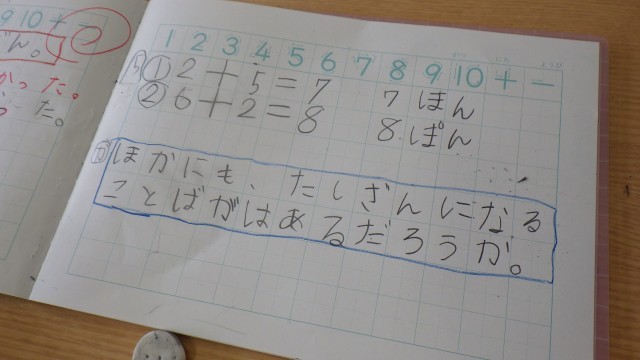 9 10 + −
ん。
った。
た。
1 2 3 4 5 6 7 8 9 10 + −
① 2+5=7 7ほん
② 6+2=8 8ぽん
ほかにも、たしざんになる
ことばがはあるだろうか。